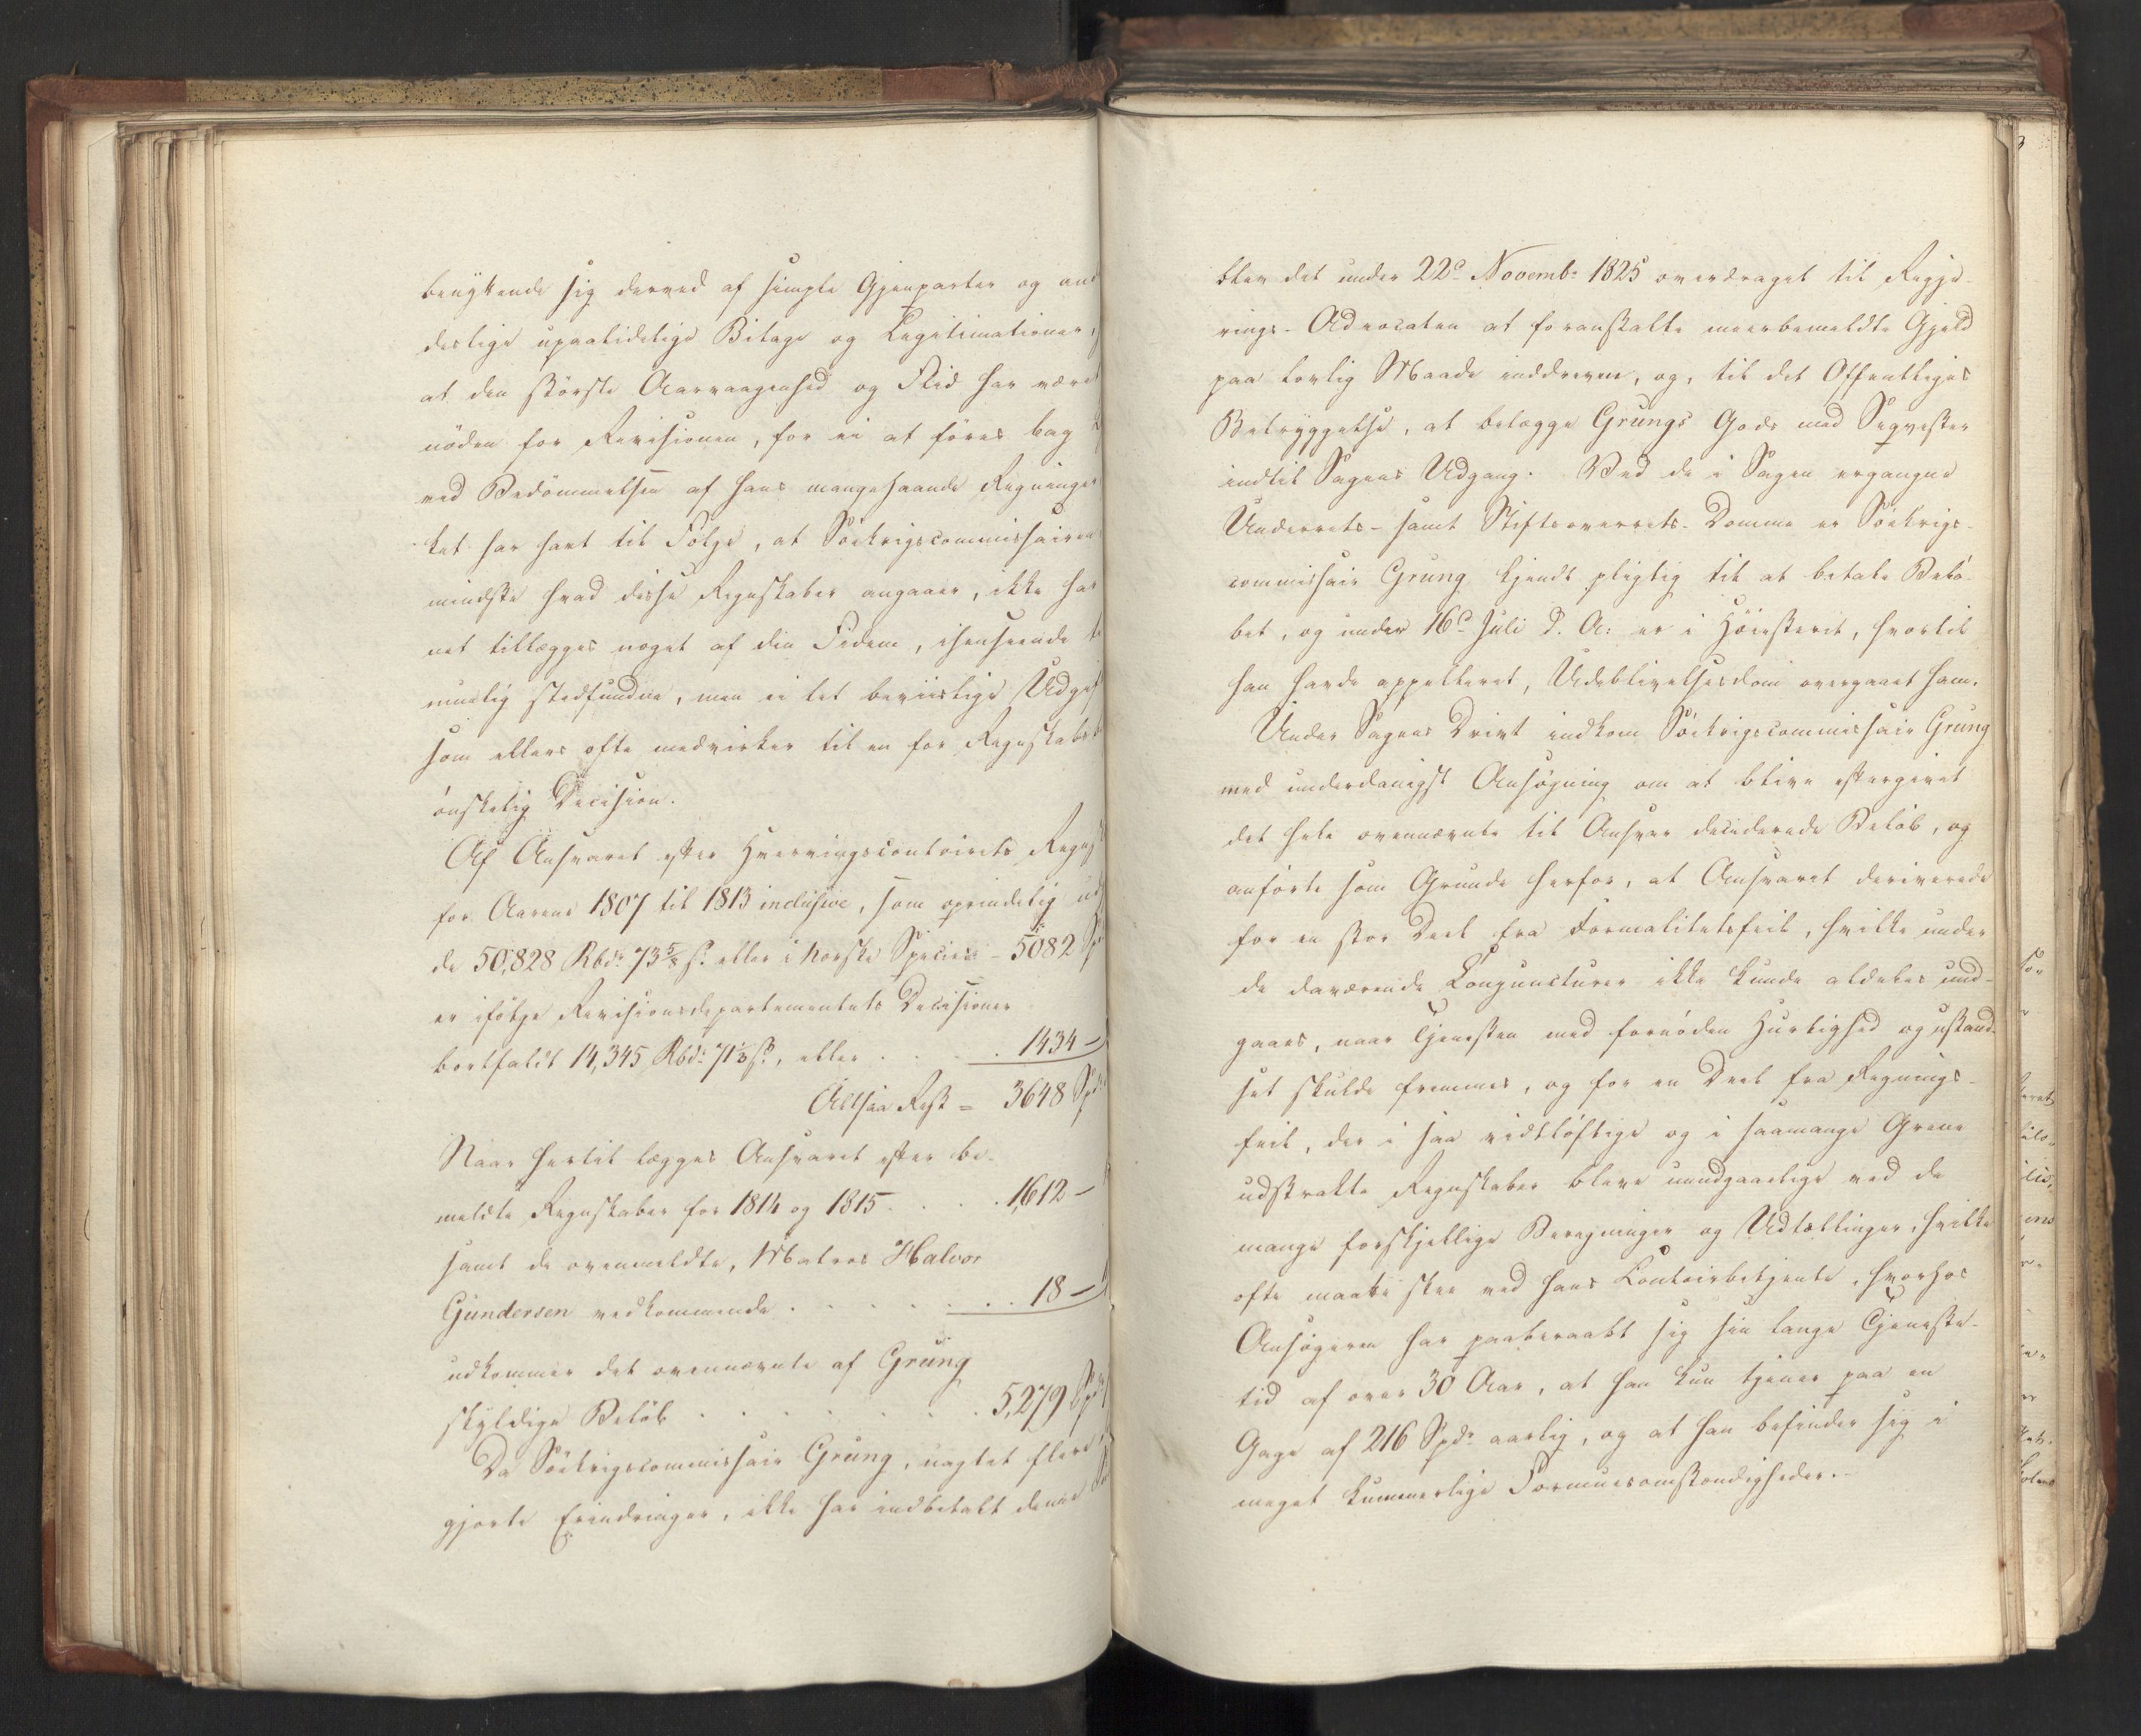 benyttende sig derved af simple Gjenparter og an
deslige upaalidelige Bilage og Legitimationer,
at den største Aarvaagenhed og Flid har været
nöden for Revisionen, for ei at föres bag
ved Bedömmelsen af hans mangehaande Regninger
ket har havt til Fölge, at Söekrigscommissairen
mindste hvad disse Regnskaber angaaer, ikke har
net tillægges noget af den Fidem, ihenseende
muelig stedfundne, men ei let beviislige Udgif
som ellers ofte medvirker til en for Regnskabs
önskelig Decision.
Af Ansvaret efter Hvervingscontoirets Regns
for Aarene 1807 til 1813 inclusive, som oprindelig ud
de 50,828 Rbdr. 73 5/8 s. eller i norske Species - 5082 Sp
er ifölge Revisionsdepartementets Decisioner
bortfaldt 14,345 Rbdr. 71 1/3 s., eller . . . . 1434 -
Altsaa Rest = 3648 Spd
Naar hertil lægges Ansvaret efter be-
meldte Regnskaber for 1814 og 1815 . . . . 1,612 -
samt de ovenmeldte, Matros Halvor
Gundersen vedkommende . . . . . . . 18 -
udkommer det ovennævnte af Grung
skyldige Belöb . . . . . . . 5,279 Spd
Da Söekrigscommissair Grung, uagtet flere
gjorte Erindringer, ikke har indbetalt denne
blev det under 22de Novembr 1825 overdraget til Regje-
rings-Advocaten at foranstalte meerbemeldte Gjeld
paa lovlig Maade inddreven, og, til det Offentliges
Betryggelse, at belægge Grungs Gods med Seqvester
indtil Sagens Udgang. Ved de i Sagen ergangne
Underrets- samt Stiftsoverrets-Domme er Söekrigs-
commissair Grung kjendt pligtig til at betale Belö-
bet, og under 16de Juli d. A. er i Höiesteret, hvortil
han havde appelleret, Udeblivelsesdom overgaaet ham.
Under Sagens Drivt indkom Söekrigscommissair Grung
med underdanigst Ansögning om at blive eftergivet
det hele ovennævnte til Ansvar deciderede Belöb, og
anförte som Grunde herfor, at Ansvaret deriverede
for en stor Deel fra Formalitetsfeil, hvilke under
de daværende Conjuncturer ikke kunde aldeles und-
gaaes, naar Tjenesten med fornöden Hurtighed og ustand-
set skulde fremmes, og for en Deel fra Regnings-
feil, der i saa vidtlöftige og i saamange Grene
udstrakte Regnskaber bleve uundgaaelige ved de
mange forskjellige Beregninger og Udtællinger, hvilke
ofte maatte skee ved hans Contoirbetjente, hvorhos
Ansögeren har paaberaabt sig sin lange Tjeneste-
tid af over 30 Aar, at han kun tjener paa en
Gage af 216 Spdr. aarlig, og at han befinder sig i
meget kummerlige Formuesomstændigheder.-